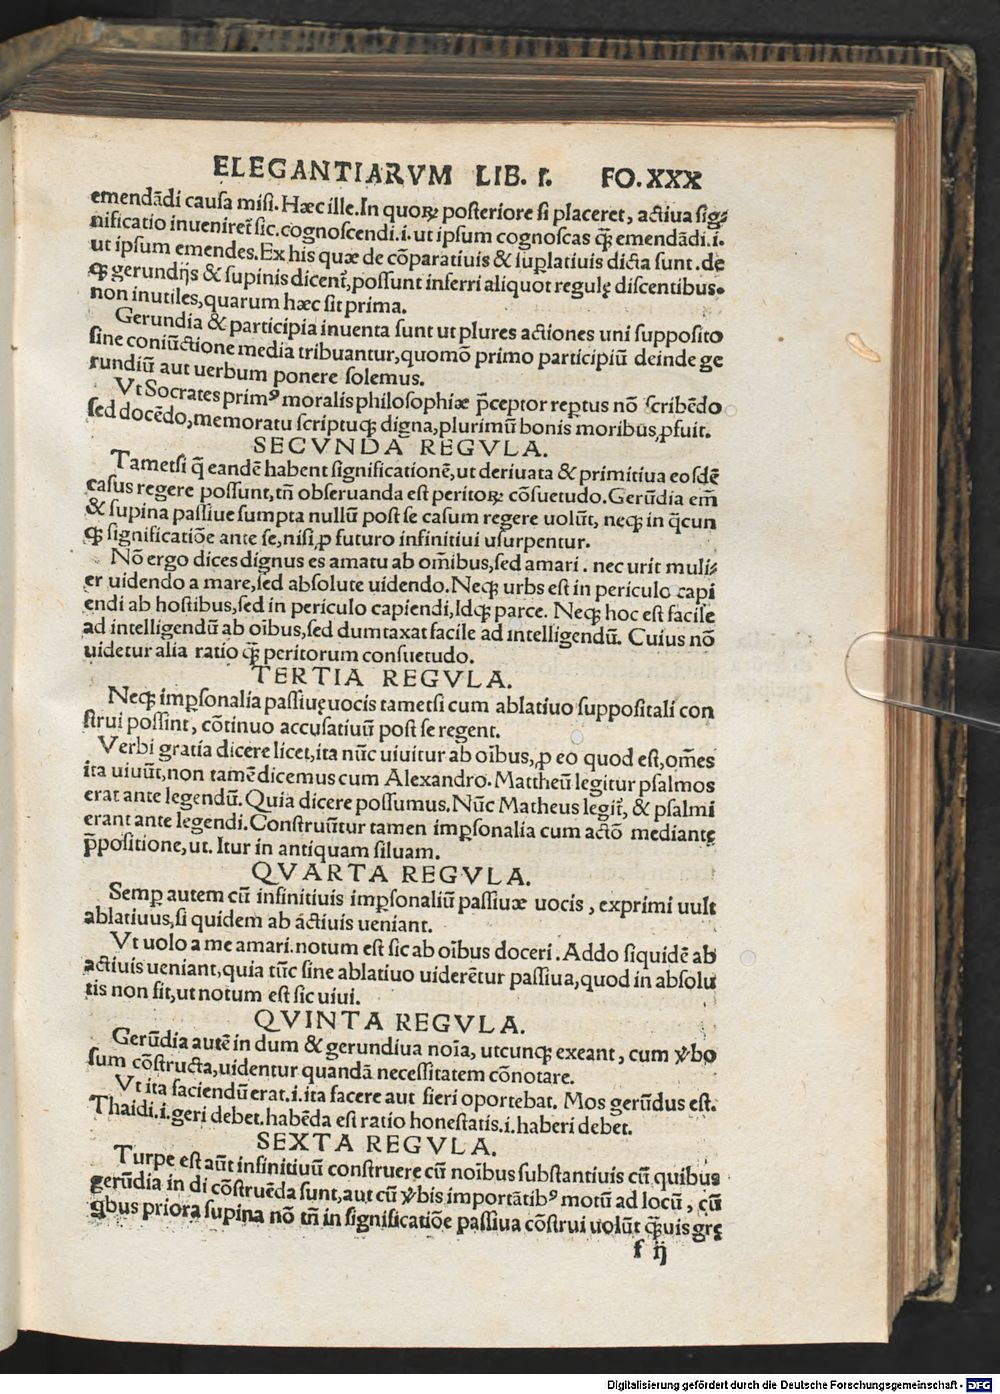 ELEGANTIARVM LIB. I. FO.XXX
emendādi cauſa miſi. Hæc ille. In quoꝝ poſteriore ſi placeret, actiua ſig⸗
nificatio inueniret̃ ſic. cognoſcendi.i. ut ipſum cognoſcas q̃ꝫ emendādi.i.
ut ipſum emendes. Ex his quæ de cōparatiuis & ſuplatiuis dicta ſunt. de
qꝫ gerundijs & ſupinis dicent̃, poſſunt inferri aliquot regulę diſcentibus.
non inutiles, quarum hæc ſit prima.
Gerundia & participia inuenta ſunt ut plures actiones uni ſuppoſito
ſine coniūctione media tribuantur, quomō primo participiū deinde ge
rundiū aut uerbum ponere ſolemus.
Vt Socrates primꝰ moralis philoſophiæ p̄ceptor reptus nō ſcribēdo
ſed docēdo, memoratu ſcriptuqꝫ digna, plurimū bonis moribus ꝓfuit.
SECVNDA REGVLA.
Tametſi q̄ eandē habent ſignificationē, ut deriuata & primitiua eoſdē
caſus regere poſſunt, tñ obſeruanda eſt peritoꝝ cōſuetudo. Gerūdia em̄
& ſupina paſſiue ſumpta nullū poſt ſe caſum regere uolūt, neqꝫ in q̄cun
qꝫ ſignificatiōe ante ſe, niſi ꝓ futuro infinitiui uſurpentur.
Nō ergo dices dignus es amatu ab om̄ibus, ſed amari. nec urit muli⸗
er uidendo a mare, ſed abſolute uidendo. Neqꝫ urbs eſt in periculo capi
endi ab hoſtibus, ſed in periculo capiendi, Idqꝫ parce. Neqꝫ hoc eſt facile
ad intelligendū ab oībus, ſed dumtaxat facile ad intelligendū. Cuius nō
uidetur alia ratio q̃ꝫ peritorum conſuetudo.
TERTIA REGVLA.
Neqꝫ imꝑſonalia paſſiuę uocis tametſi cum ablatiuo ſuppoſitali con
ſtrui poſſint, cōtinuo accuſatiuū poſt ſe regent.
Verbi gratia dicere licet, ita nūc uiuitur ab oībus, ꝓ eo quod eſt, om̄es
ita uiuūt, non tamē dicemus cum Alexandro. Mattheū legitur pſalmos
erat ante legendū. Quia dicere poſſumus. Nūc Matheus legit̃, & pſalmi
erant ante legendi. Conſtruūtur tamen imꝑſonalia cum actō mediante
p̄poſitione, ut. Itur in antiquam ſiluam.
QVARTA REGVLA.
Semꝑ autem cū infinitiuis imꝑſonaliū paſſiuæ uocis, exprimi uult
ablatiuus, ſi quidem ab actiuis ueniant.
Vt uolo a me amari. notum eſt ſic ab oībus doceri. Addo ſiquidē ab
actiuis ueniant, quia tūc ſine ablatiuo uiderētur paſſiua, quod in abſolu
tis non fit, ut notum eſt ſic uiui.
QVINTA REGVLA.
Gerūdia autē in dum & gerundiua noīa, utcunqꝫ exeant, cum v̄bo
ſum cōſtructa, uidentur quandā neceſſitatem cōnotare.
Vt ita faciendū erat.i. ita facere aut fieri oportebat. Mos gerūdus eſt.
Thaidi.i. geri debet. habēda eſt ratio honeſtatis.i. haberi debet.
SEXTA REGVLA.
Turpe eſt aūt infinitiuū conſtruere cū noībus ſubſtantiuis cū quibus
gerūdia in di cōſtruēda ſunt, aut cū v̄bis importātibꝰ motū ad locū, cū
qbus priora ſupina nō tñ in ſignificatiōe paſſiua cōſtrui uolūt q̃ꝫuis grę
f ij
Digitalisierung gefördert durch die Deutsche Forschungsgemeinschaft - DFG